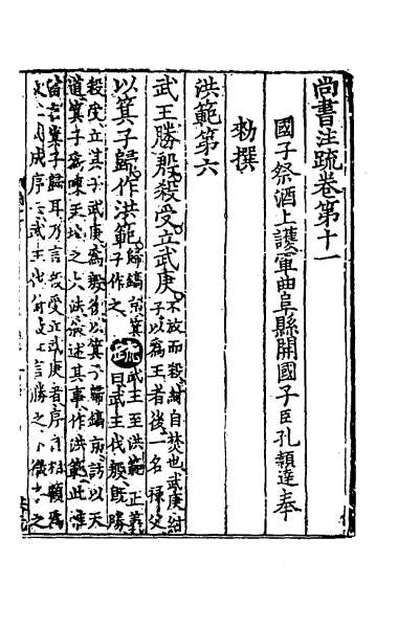 尚書注疏卷第十一
國子祭酒上護軍曲阜縣開國子臣孔穎達奉
勑撰
洪範第六
武王勝殷殺受立武庚不放而殺紂自焚也武庚紂
子以爲王者後一名祿父
以箕子歸作洪範歸鎬京箕
子作之 疏 武王至洪範 正義
曰武王伐殷旣勝
殺受立其子武庚爲殷後以箕子歸鎬京訪以天
道箕子爲陳天地之大法叙述其事作洪範此惟
當言箕子歸耳乃言殺受立武庚者序自相顧爲
成序言武王伐言勝之之